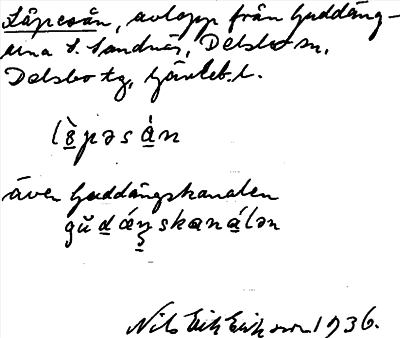 Låpesån, avlopp från Guddäng-
arna S. Sandnäs, Delsbo sn,
Delsbo tg, Gävleb. l.
lo̱pəsá̱n
även Guddängskanalen
gŭdä́ŋskaná̱lən
Nils Erik Eriksson 1936.